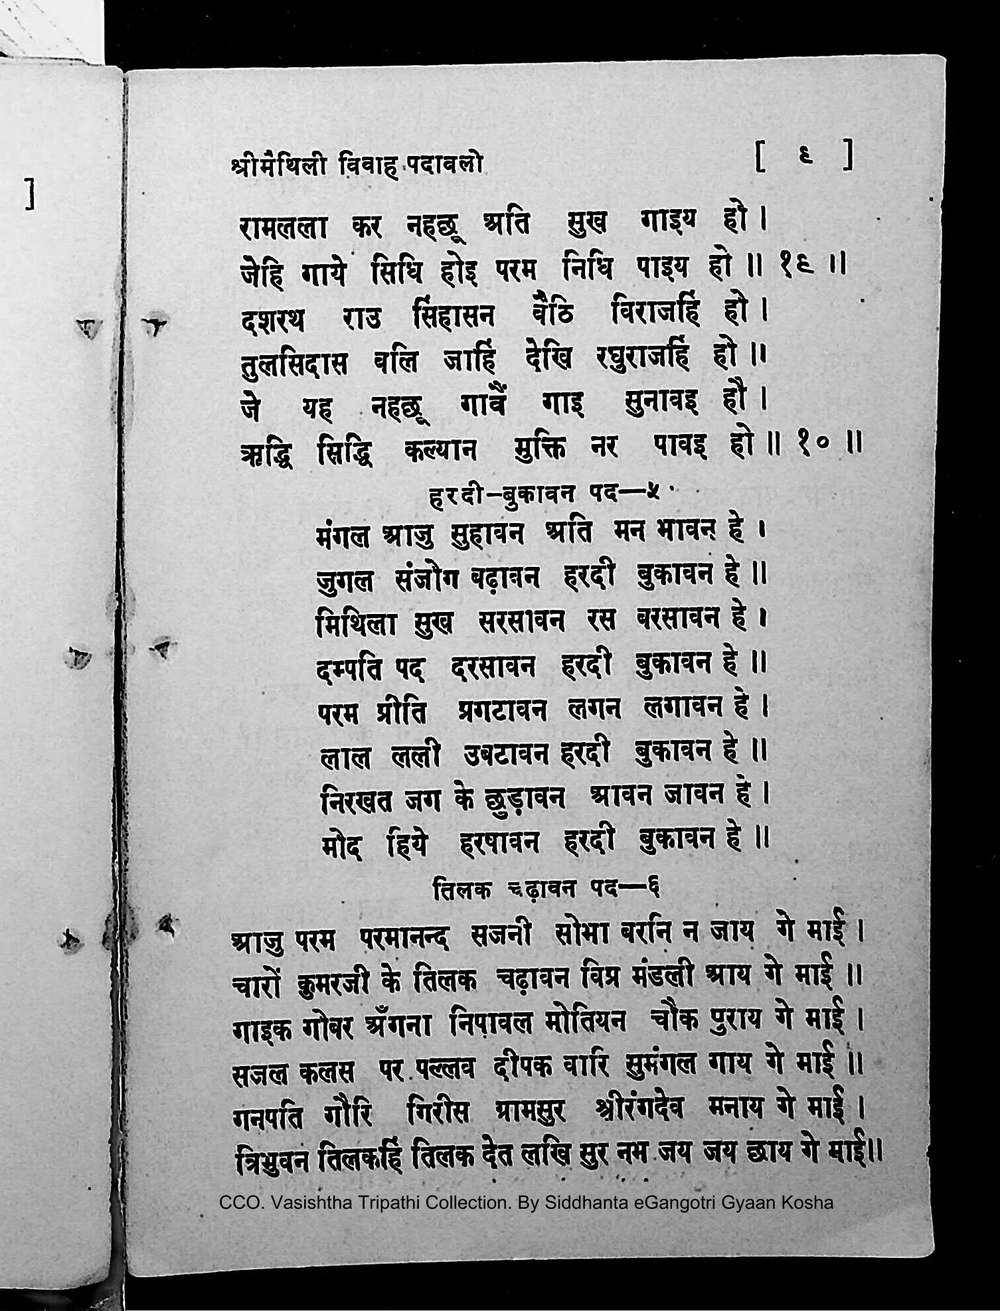 ]
श्रीमैथिली विवाह पदावली [ ९ ]
रामलला कर नहछू अति सुख गाइय हो ।
जेहि गाये सिधि होइ परम निधि पाइय हो ॥ १९ ॥
दशरथ राउ सिंहासन बैठि विराजहिं हो ।
तुलसिदास वलि जाहिं देखि रघुराजहिं हो ॥
जे यह नहछू गावैं गाइ सुनावइ हौ ।
ऋद्धि सिद्धि कल्यान मुक्ति नर पावइ हो ॥ १० ॥
हरदी-बुकावन पद—५
मंगल आजु सुहावन अति मन भावन हे ।
जुगल संजोग बढ़ावन हरदी बुकावन हे ॥
मिथिला सुख सरसावन रस बरसावन हे ।
दम्पति पद दरसावन हरदी बुकावन हे ॥
परम प्रीति प्रगटावन लगन लगावन हे ।
लाल लली उबटावन हरदी बुकावन हे ॥
निरखत जग के छुड़ावन आवन जावन हे ।
मोद हिये हरषावन हरदी बुकावन हे ॥
तिलक चढ़ावन पद—६
आजु परम परमानन्द सजनी सोभा बरनि न जाय गे माई ।
चारों कुमरजी के तिलक चढ़ावन विप्र मंडली आय गे माई ॥
गाइक गोबर अँगना निपावल मोतियन चौक पुराय गे माई ।
सजल कलस पर पल्लव दीपक वारि सुमंगल गाय गे माई ॥
गनपति गौरि गिरीस ग्रामसुर श्रीरंगदेव मनाय गे माई ।
त्रिभुवन तिलकहिं तिलक देत लखि सुर नभ जय जय छाय गे माई॥
CCO. Vasishtha Tripathi Collection. By Siddhanta eGangotri Gyaan Kosha